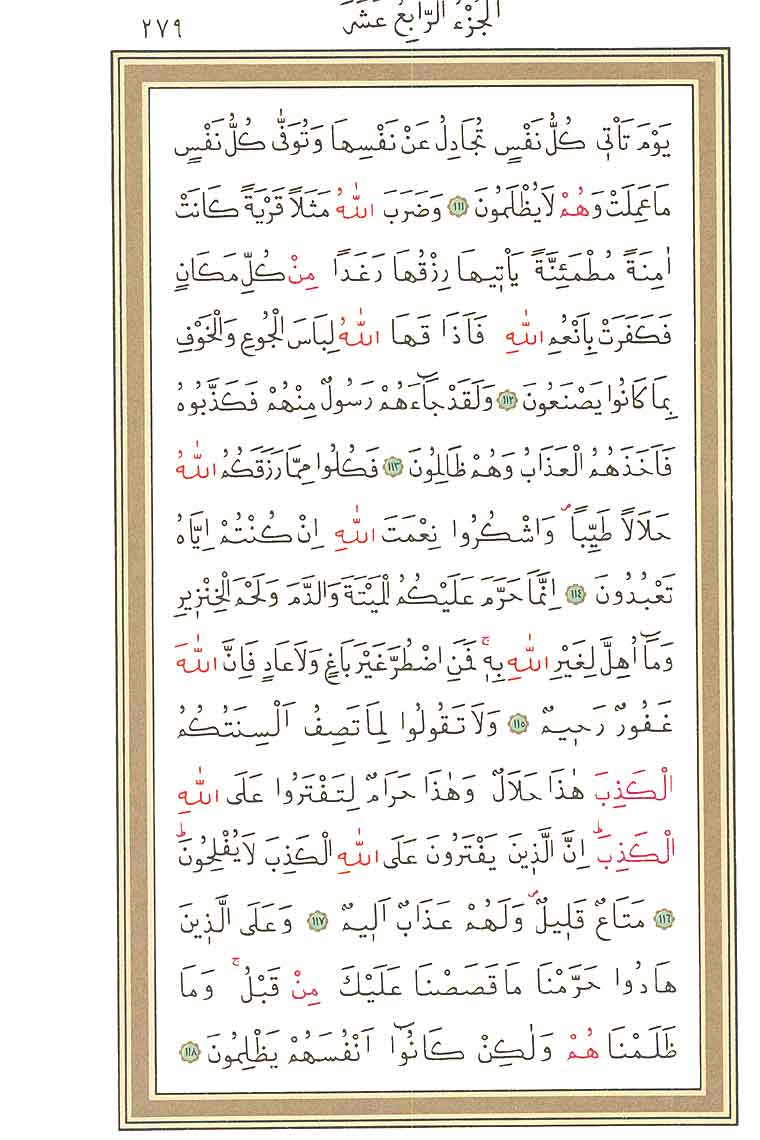 ٢٧٩ اَلْجُزْءُ الرَّابِعُ عَشَرَ
يَوْمَ تَأْتٖى كُلُّ نَفْسٍ تُجَادِلُ عَنْ نَفْسِهَا وَتُوَفّٰى كُلُّ نَفْسٍ
مَا عَمِلَتْ وَهُمْ لَا يُظْلَمُونَ ﴿١١١﴾ وَضَرَبَ اللّٰهُ مَثَلًا قَرْيَةً كَانَتْ
اٰمِنَةً مُطْمَئِنَّةً يَأْتٖيهَا رِزْقُهَا رَغَدًا مِنْ كُلِّ مَكَانٍ
فَكَفَرَتْ بِاَنْعُمِ اللّٰهِ فَاَذَاقَهَا اللّٰهُ لِبَاسَ الْجُوعِ وَالْخَوْفِ
بِمَا كَانُوا يَصْنَعُونَ ﴿١١٢﴾ وَلَقَدْ جَٓاءَهُمْ رَسُولٌ مِنْهُمْ فَكَذَّبُوهُ
فَاَخَذَهُمُ الْعَذَابُ وَهُمْ ظَالِمُونَ ﴿١١٣﴾ فَكُلُوا مِمَّا رَزَقَكُمُ اللّٰهُ
حَلَالًا طَيِّبًاۖ وَاشْكُرُوا نِعْمَتَ اللّٰهِ اِنْ كُنْتُمْ اِيَّاهُ
تَعْبُدُونَ ﴿١١٤﴾ اِنَّمَا حَرَّمَ عَلَيْكُمُ الْمَيْتَةَ وَالدَّمَ وَلَحْمَ الْخِنْزٖيرِ
وَمَٓا اُهِلَّ لِغَيْرِ اللّٰهِ بِهٖۚ فَمَنِ اضْطُرَّ غَيْرَ بَاغٍ وَلَا عَادٍ فَاِنَّ اللّٰهَ
غَفُورٌ رَحٖيمٌ ﴿١١٥﴾ وَلَا تَقُولُوا لِمَا تَصِفُ اَلْسِنَتُكُمُ
الْكَذِبَ هٰذَا حَلَالٌ وَهٰذَا حَرَامٌ لِتَفْتَرُوا عَلَى اللّٰهِ
الْكَذِبَؕ اِنَّ الَّذٖينَ يَفْتَرُونَ عَلَى اللّٰهِ الْكَذِبَ لَا يُفْلِحُونَؕ
﴿١١٦﴾ مَتَاعٌ قَلٖيلٌۖ وَلَهُمْ عَذَابٌ اَلٖيمٌ ﴿١١٧﴾ وَعَلَى الَّذٖينَ
هَادُوا حَرَّمْنَا مَا قَصَصْنَا عَلَيْكَ مِنْ قَبْلُۚ وَمَا
ظَلَمْنَاهُمْ وَلٰكِنْ كَانُٓوا اَنْفُسَهُمْ يَظْلِمُونَ ﴿١١٨﴾